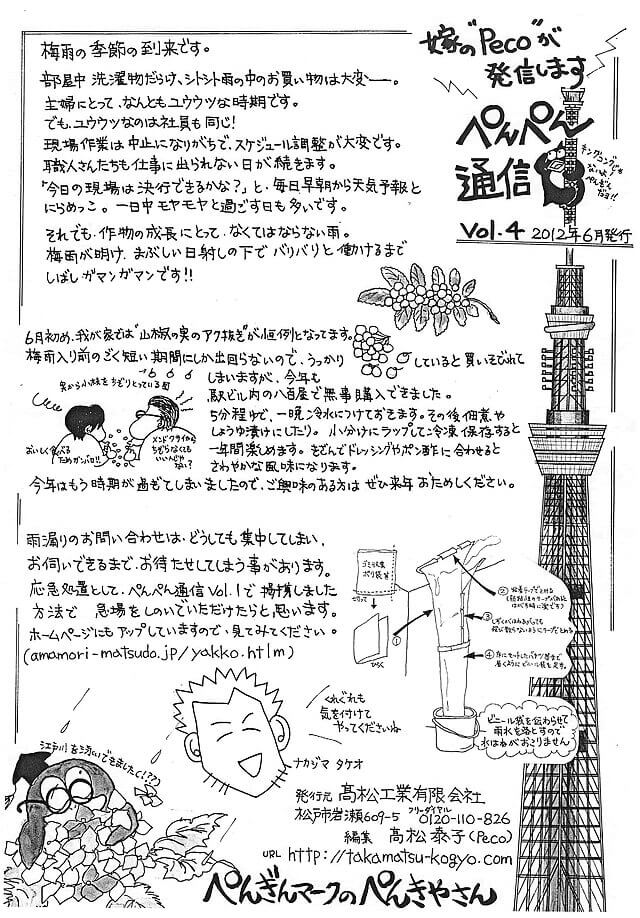 嫁の"Peco"が
発信します
ぺんぺん
通信
キングコングじゃ
ないよ
ぺんぎん
だヨ!!
Vol.4 2012年6月発行
梅雨の季節の到来です。
部屋中 洗濯物だらけ、シトシト雨の中のお買い物は大変ー。
主婦にとって、なんともユウウツな時期です。
でも、ユウウツなのは社員も同じ!
現場作業は中止になりがちで、スケジュール調整が大変です。
職人さんたちも仕事に出られない日が続きます。
「今日の現場は決行できるかな?」と、毎日早朝から天気予報と
にらめっこ。一日中モヤモヤと過ごす日も多いです。
それでも、作物の成長にとって、なくてはならない雨。
梅雨が明け、まぶしい日射しの下でバリバリと働けるまで
しばしガマンガマンです!!
6月初め、我が家では"山椒の実のアク抜き"が恒例となってます。
梅雨入り前のごく短い期間にしか出回らないので、うっかり
していると買いそびれて
しまいますが、今年も
駅ビル内の八百屋で無事購入できました。
5分程ゆで、一晩冷水につけておきます。その後佃煮や
しょうゆ漬けにしたり。小分けにラップして冷凍保存すると
一年間楽しめます。きざんでドレッシングやポン酢に合わせると
さわやかな風味になります。
今年はもう時期が過ぎてしまいましたので、ご興味のある方は ぜひ来年おためしください。
実から小枝をちぎりとっている図
おいしく食べる
ためガンバロ!!
メンドクサイから
ちぎらなくても
いいんじゃ
ない?
雨漏りのお問い合わせは、どうしても集中してしまい、
お伺いできるまで、お待たせしてしまう事があります。
応急処置として、ぺんぺん通信Vol.1で掲載しました
方法で 急場をしのいでいただけたらと思います。
ホームページにもアップしていますので、見てみてください。
(amamori-matsudo.jp/yakko.htlm)
ゴミ収集
ポリ袋等
ひらく
①
②
③
④
ビニール袋を伝わらせて
雨水を落とすので
水はねがおこりません
くれぐれも
気を付けて
やってくださいね
ナカジマ タケオ
江戸川を泳いできました(!??)
発行元 髙松工業有限会社
松戸市岩瀬609-5 フリーダイヤル 0120-110-826
編集 髙松 泰子(Peco)
URL http://takamatsu-kogyo.com
ぺんぎんマークのぺんきやさん